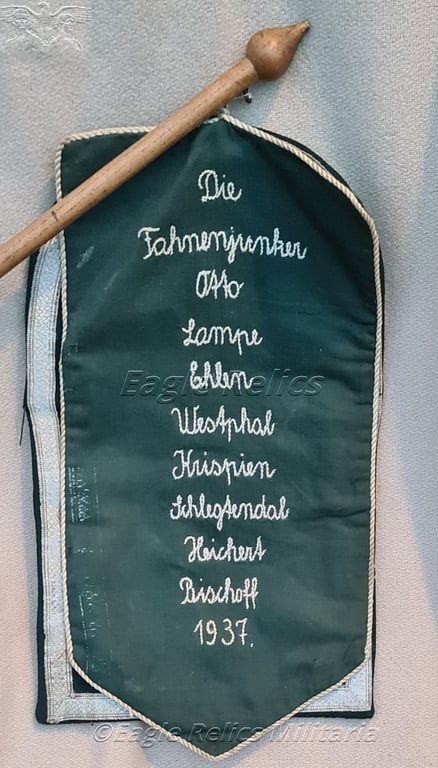 Die
Fahnenjunker
Otto
Lampe
Ehlen
Eagle Relics
Westphal
Krispien
Schlegtendal
Heichert
Bischoff
1937.
©Eagle Relics Militaria